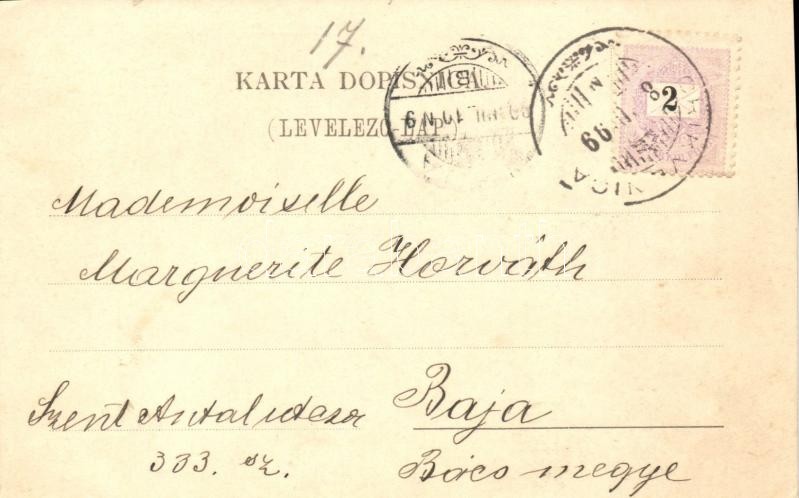 17.
KARTA DOPISNICA
(LEVELEZŐ-LAP.)
2
Mademoiselle
Marguerite Horváth
Szent Antal utcza
Baja
333. sz.
Bács megye